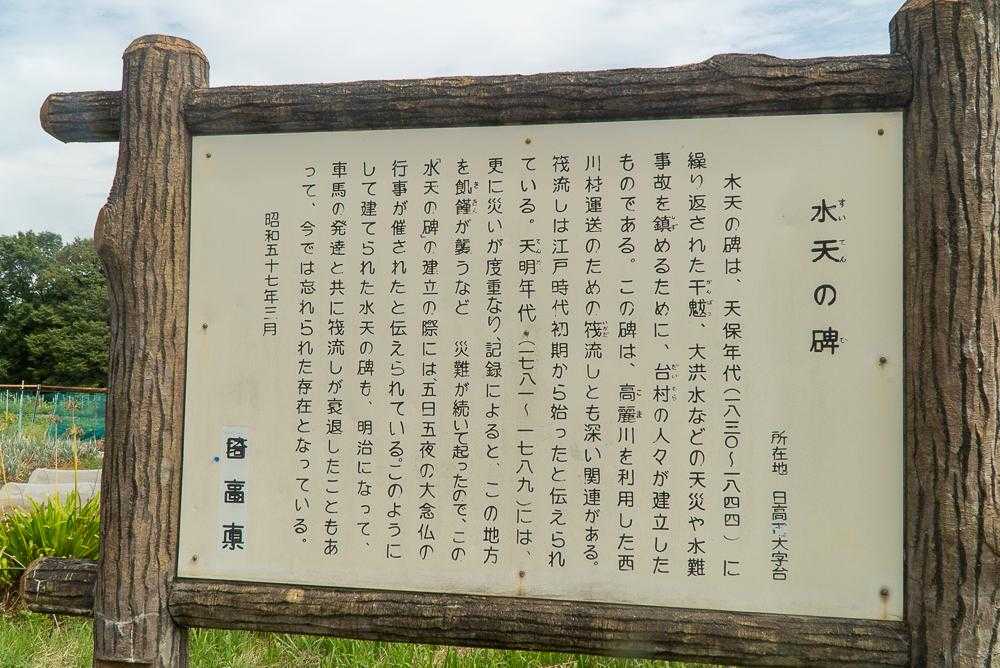 水天の碑
すいてん ひ
所在地 日高市大字台
水天の碑は、天保年代（一八三〇〜一八四四）に
繰り返された干魃、大洪水などの天災や水難
かんばつ
事故を鎮めるために、台村の人々が建立した
しず だいむら
ものである。この碑は、高麗川を利用した西
こま
川材運送のための筏流しとも深い関連がある。
いかだ
筏流しは江戸時代初期から始ったと伝えられ
ている。天明年代（一七八一〜一七八九）には、
てんめい
更に災いが度重なり、記録によると、この地方
を飢饉が襲うなど 災難が続いて起ったので、この
ききん
「水天の碑」の建立の際には、五日五夜の大念仏の
行事が催されたと伝えられている。このように
して建てられた水天の碑も、明治になって、
車馬の発達と共に筏流しが衰退したこともあ
って、今では忘れられた存在となっている。
昭和五十七年三月